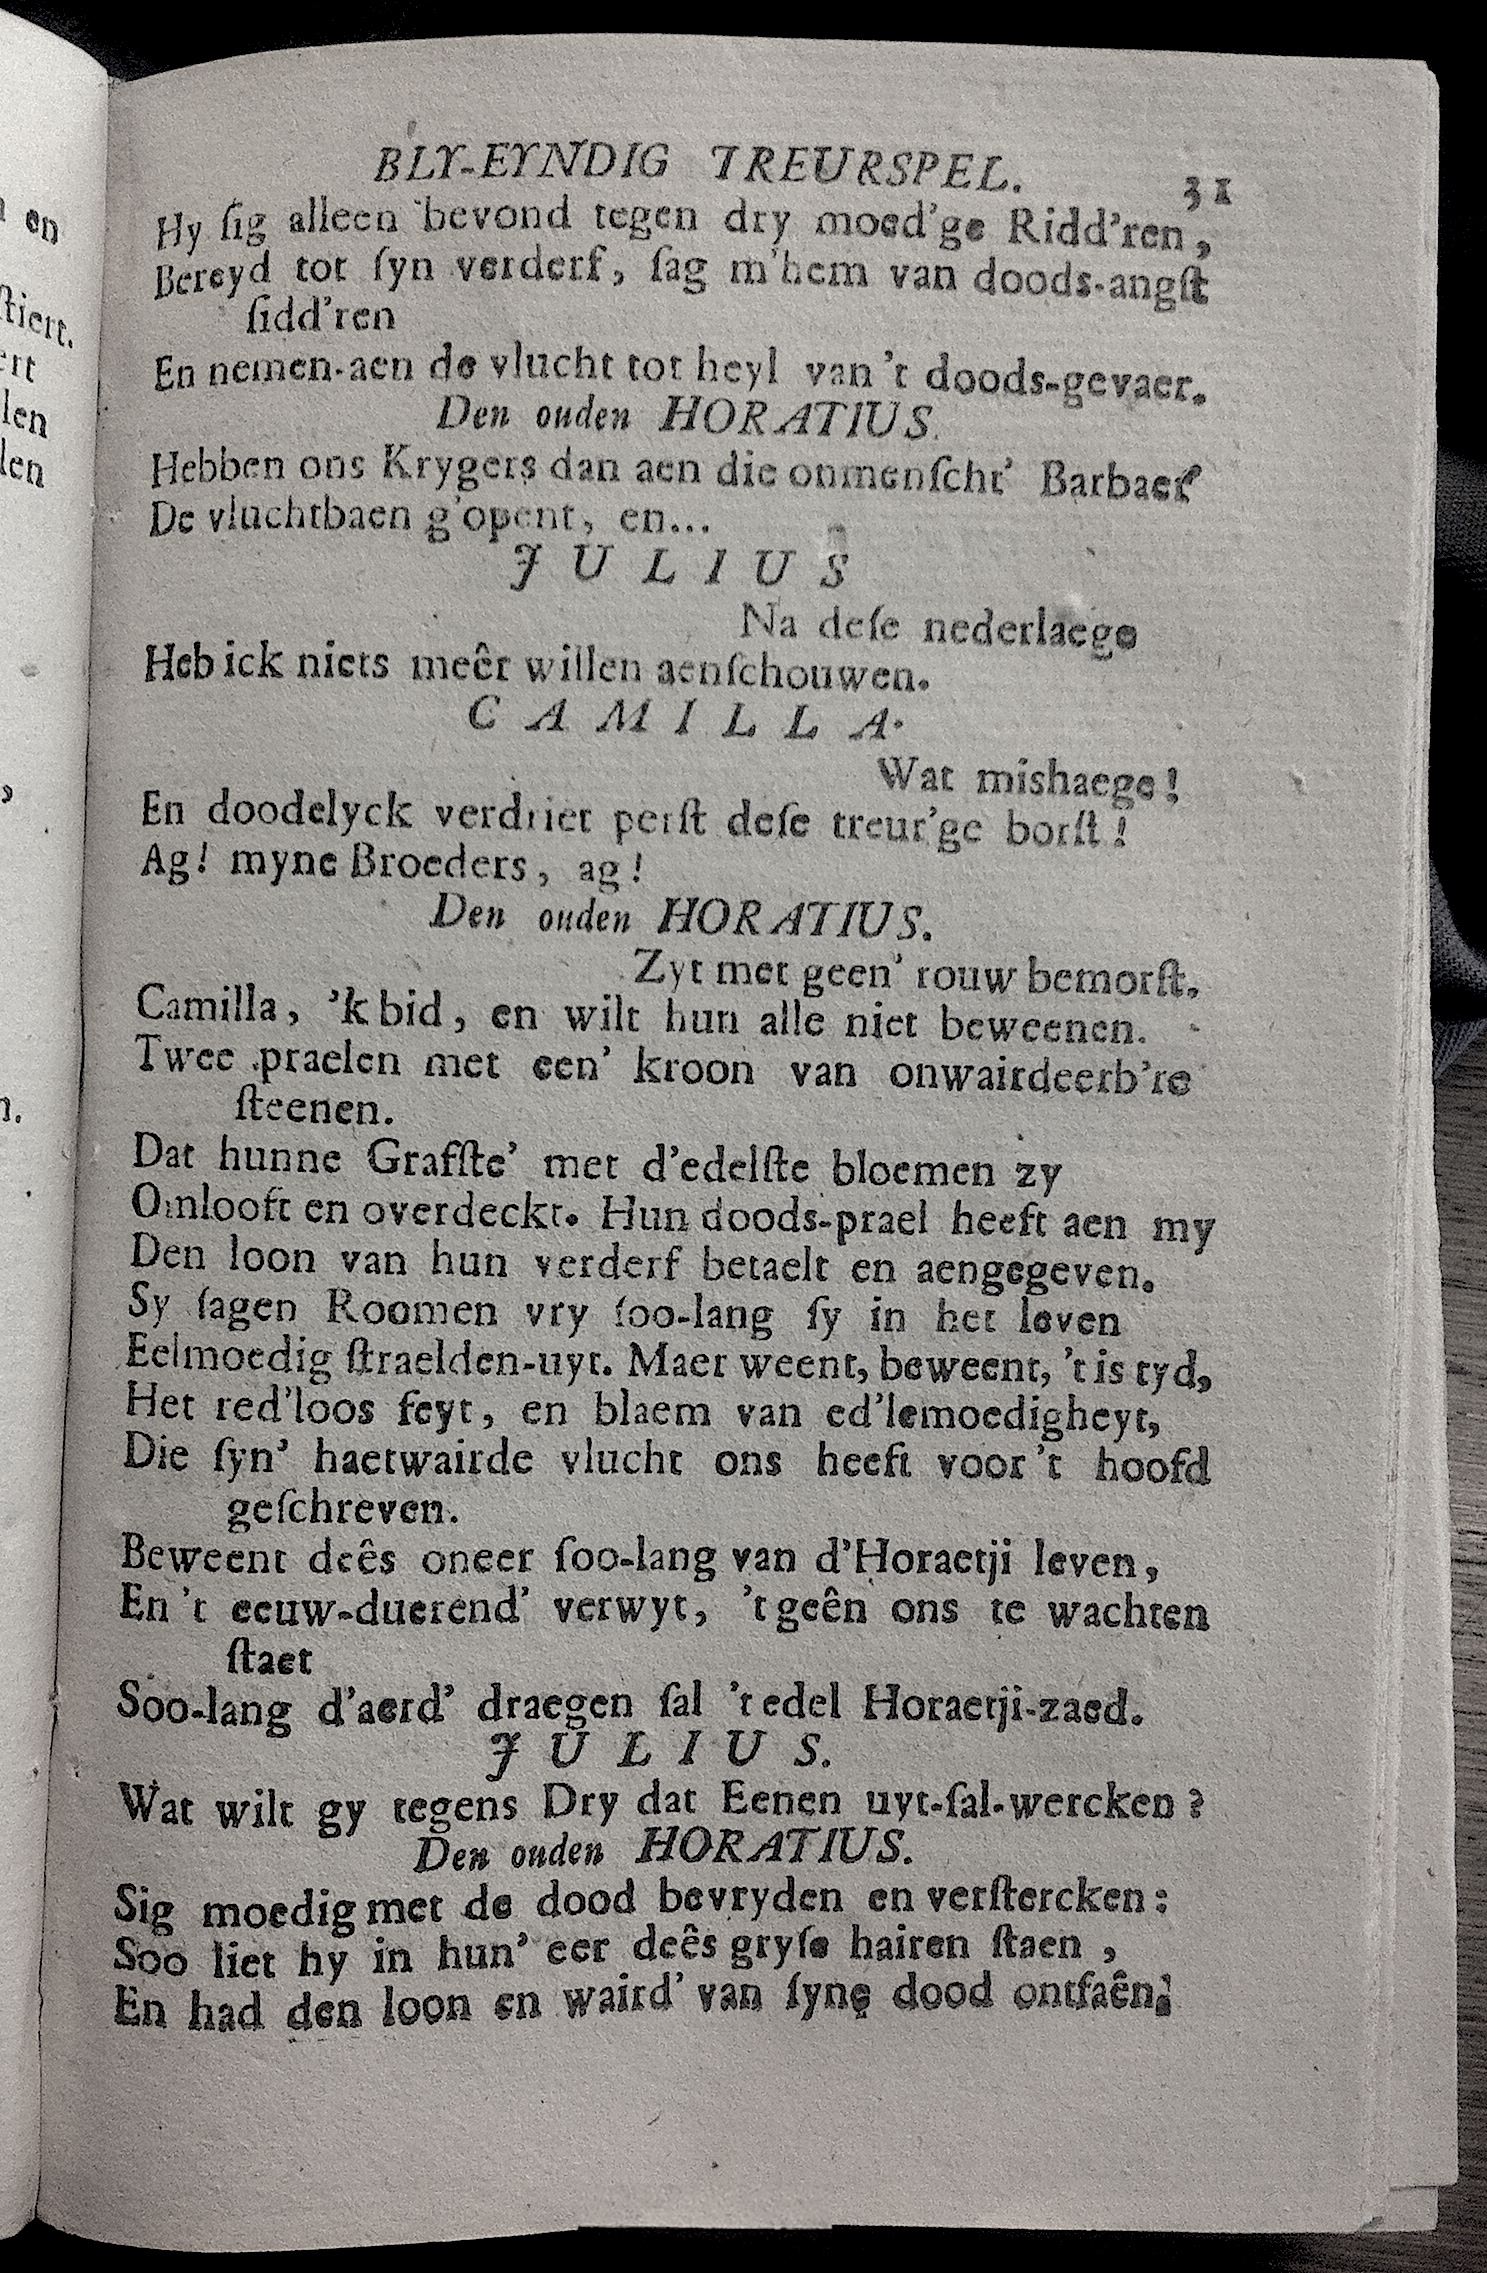 BLY-EYNDIG TREURSPEL. 31
Hy ſig alleen bevond tegen dry moed'ge Ridd'ren,
Bereyd tot ſyn verderf, ſag m'hem van doods-angſt
ſidd'ren
En nemen-aen de vlucht tot heyl van 't doods-gevaer.
Den ouden HORATIUS.
Hebben ons Krygers dan aen die onmenſcht' Barbaer
De vluchtbaen g'opent, en...
JULIUS
Na deſe nederlaege
Heb ick niets meêr willen aenſchouwen.
CAMILLA.
Wat mishaege!
En doodelyck verdriet perſt deſe treur'ge borſt!
Ag! myne Broeders, ag!
Den ouden HORATIUS.
Zyt met geen' rouw bemorſt,
Camilla, 'k bid, en wilt hun alle niet beweenen.
Twee praelen met een' kroon van onwairdeerb're
ſteenen.
Dat hunne Grafſte' met d'edelſte bloemen zy
Omlooft en overdeckt. Hun doods-prael heeft aen my
Den loon van hun verderf betaelt en aengegeven.
Sy ſagen Roomen vry ſoo-lang ſy in het leven
Eelmoedig ſtraelden-uyt. Maer weent, beweent, 't is tyd,
Het red'loos feyt, en blaem van ed'lemoedigheyt,
Die ſyn' haetwairde vlucht ons heeft voor 't hoofd
geſchreven.
Beweent deês oneer ſoo-lang van d'Horaetji leven,
En 't eeuw-duerend' verwyt, 't geên ons te wachten
ſtaet
Soo-lang d'aerd' draegen ſal 't edel Horaetji-zaed.
JULIUS.
Wat wilt gy tegens Dry dat Eenen uyt-ſal-wercken?
Den ouden HORATIUS.
Sig moedig met de dood bevryden en verſtercken:
Soo liet hy in hun' eer deês gryſe hairen ſtaen,
En had den loon en waird' van ſyne dood ontfaên;
en
ſtiert.
ert
len
len
,
n.